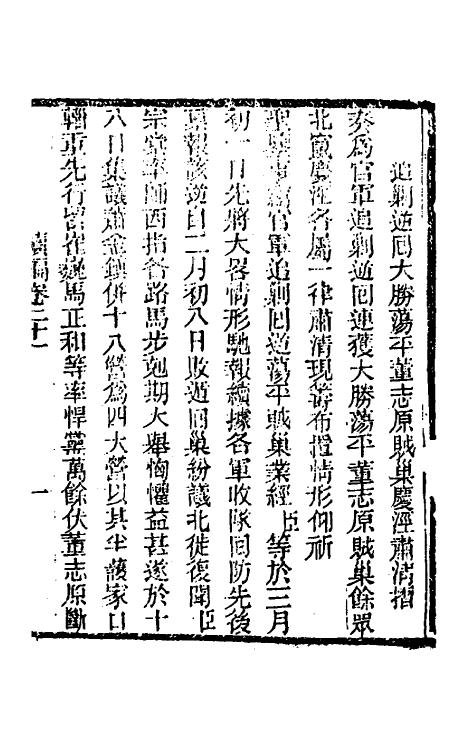 追剿逆回大勝蕩平董志原賊巢慶涇肅清摺
奏爲官軍追剿逆回連獲大勝蕩平董志原賊巢餘眾
北竄慶涇各屬一律肅清現籌布置情形仰祈
聖鑒事竊官軍追剿回逆蕩平賊巢業經臣等於三月
初一日先將大畧情形馳報續據各軍收隊回防先後
稟報該逆自二月初八日敗遁回巢紛議北徙復聞臣
宗棠率師西指各路馬步剋期大舉恟懼益甚遂於十
八日集議蕭金鎮併十八營爲四大營以其半護家口
輜重先行皆崔三馬正和等率悍黨萬餘伏董志原斷
續稿卷三十一
一